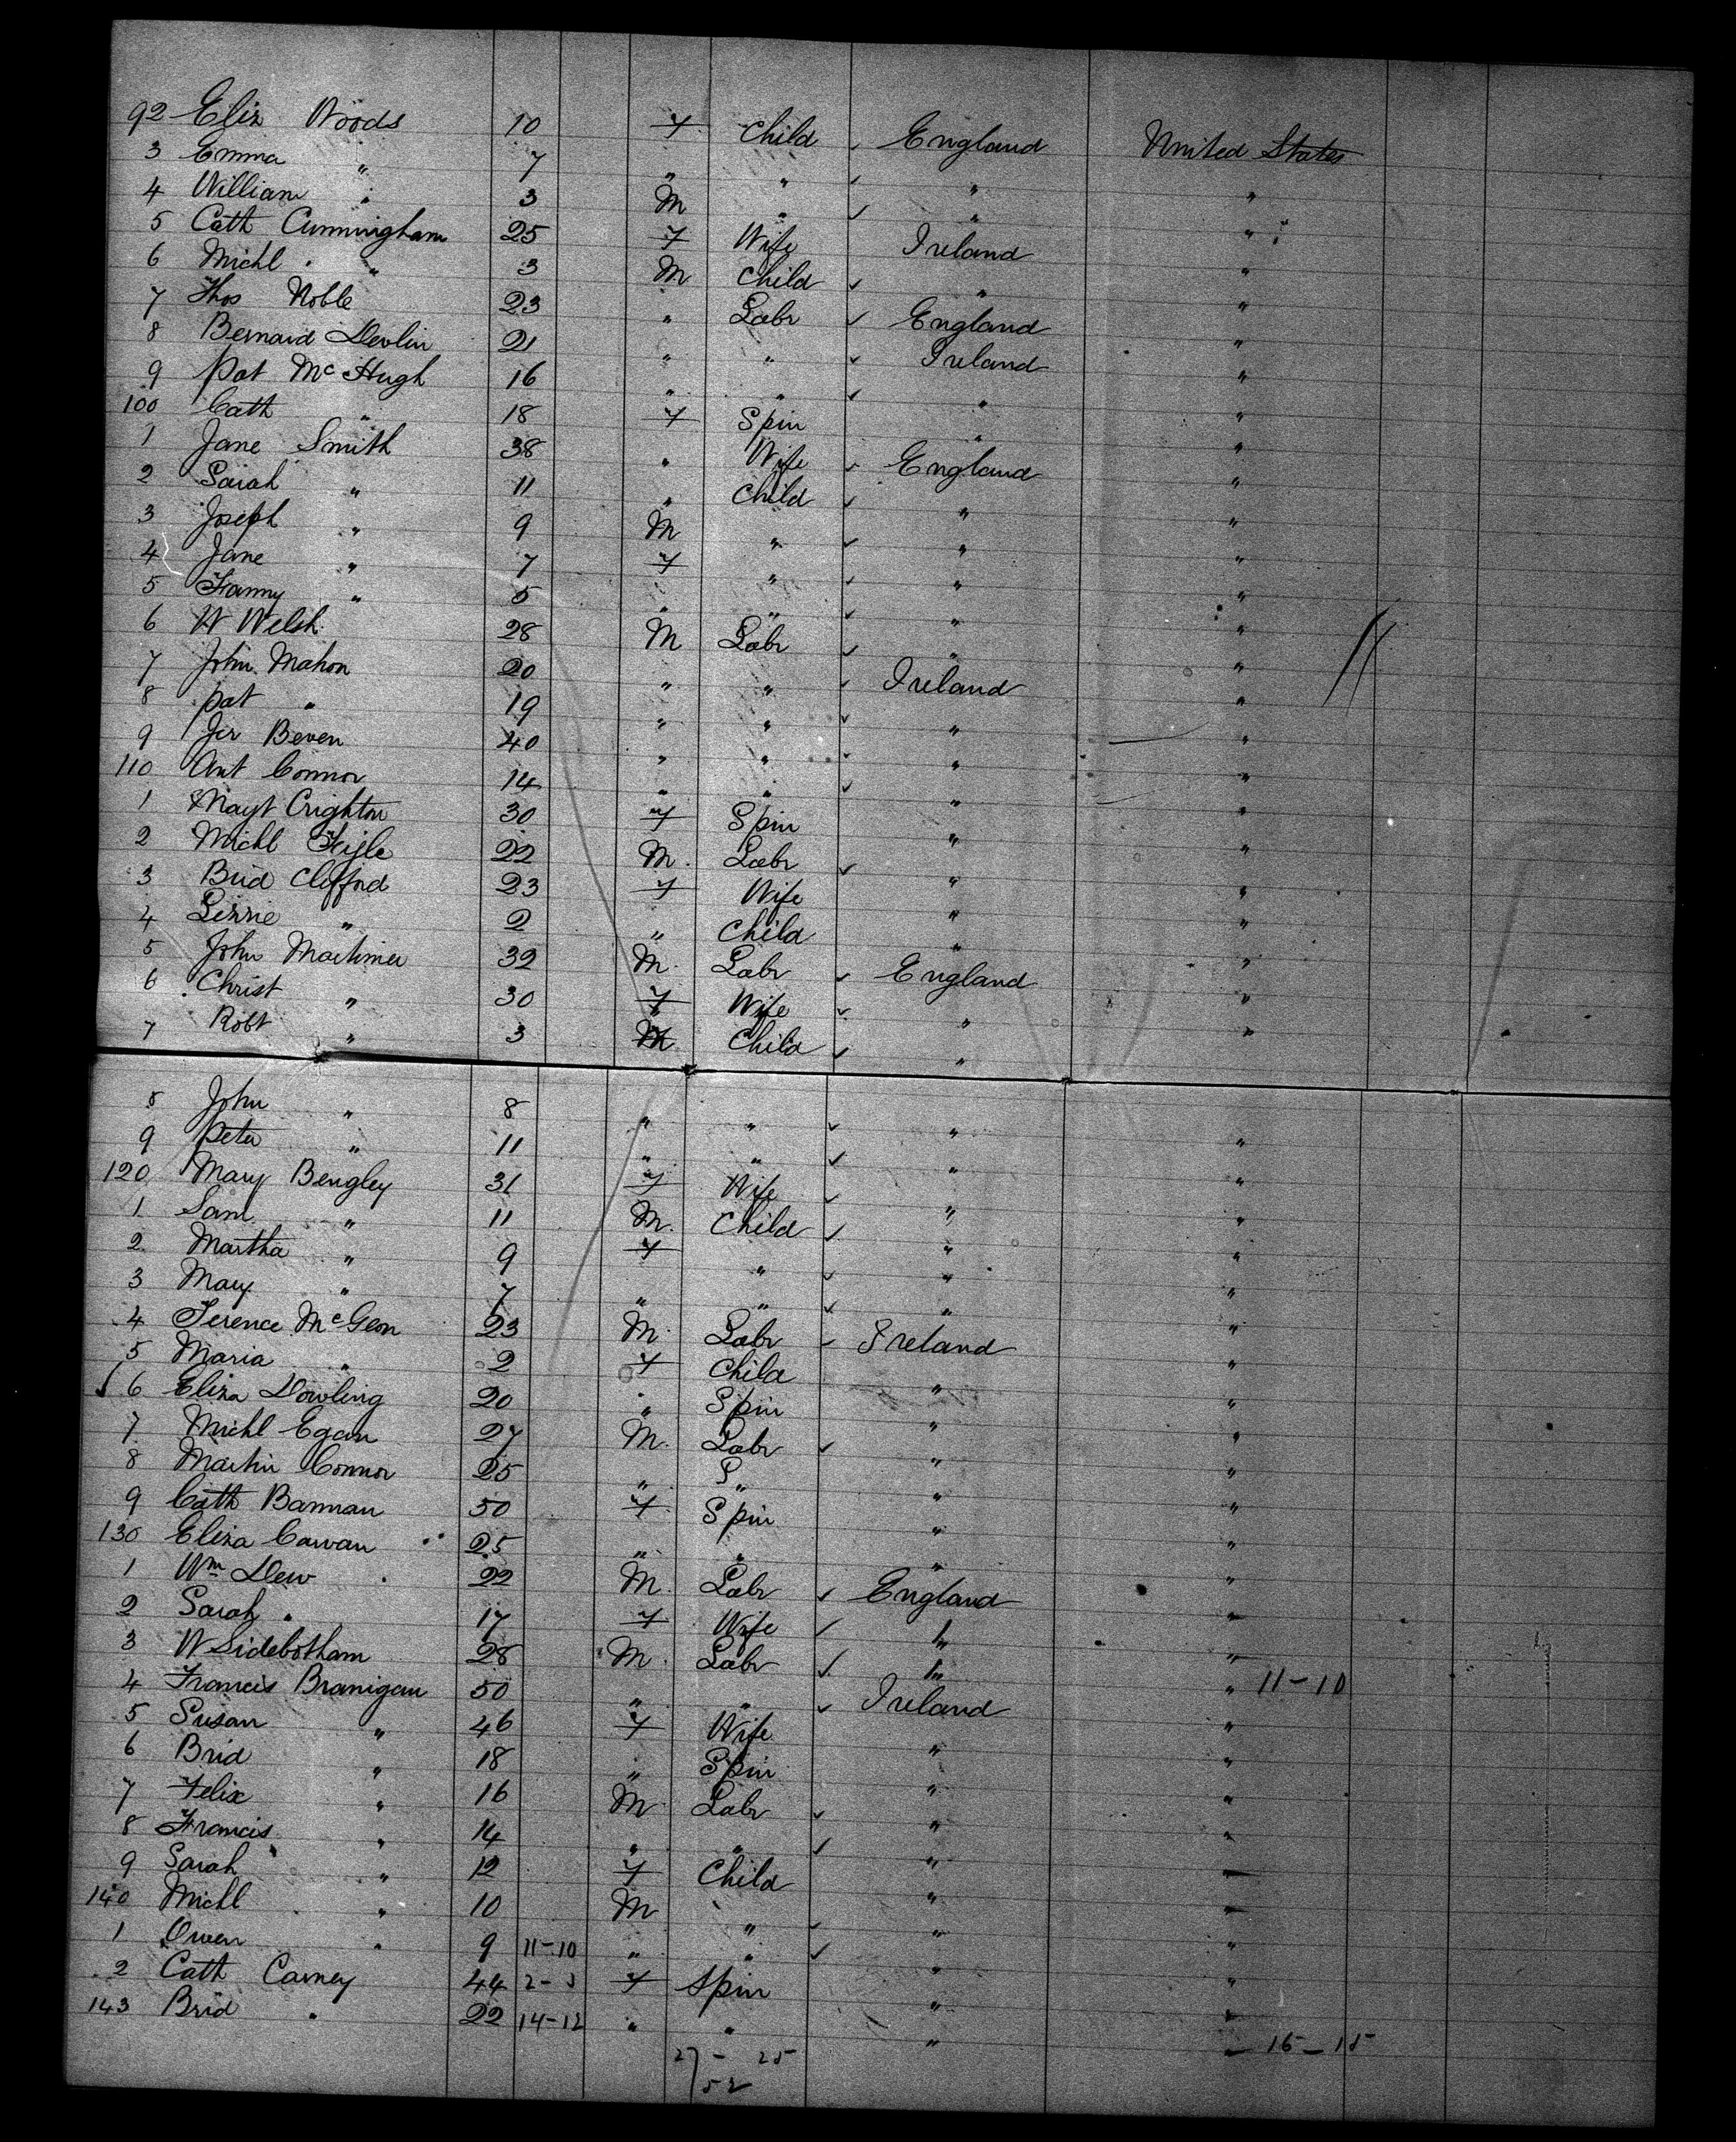 92 Eliz Woods 10 F Child England United States
3 Emma " 7 " " " "
4 William " 3 M " " "
5 Cath Cunningham 25 F Wife Ireland "
6 Michl " 3 M Child " "
7 Thos Noble 23 " Labr England "
8 Bernard Devlin 21 " " Ireland "
9 Pat McHugh 16 " " " "
100 Cath " 18 F Spin " "
1 Jane Smith 38 " Wife England "
2 Sarah " 11 " Child " "
3 Joseph " 9 M " " "
4 Jane " 7 F " " "
5 Fanny " 5 " " " "
6 W Welsh 28 M Labr " "
7 John Mahon 20 " " Ireland "
8 Pat " 19 " " " "
9 Jer Beven 40 " " " "
110 Ant Connor 14 " " " "
1 Magt Crighton 30 F Spin " "
2 Michl 22 M. Labr " "
3 Brid Clifford 23 F Wife " "
4 Lizzie " 2 " Child " "
5 John Mortimer 32 M. Labr England "
6 Christ " 30 F Wife " "
7 Robt " 3 M Child " "
8 John " 8 " " " "
9 Peter " 11 " " " "
120 Mary Bengley 31 F Wife " "
1 Sam " 11 M. Child " "
2 Martha " 9 F " " "
3 Mary " 7 " " " "
4 Terence McGeon 23 M. Labr Ireland "
5 Maria " 2 F Child " "
6 Eliza Dowling 20 " Spin " "
7 Michl Egan 27 M. Labr " "
8 Martin Connor 25 " " " "
9 Cath Bannan 50 F Spin " "
130 Eliza Cawan 25 " " " "
1 Wm Dew 22 M. Labr England "
2 Sarah " 17 F Wife " "
3 W Sidebotham 28 M. Labr " "
4 Francis Branigan 50 " " Ireland " 11-10
5 Susan " 46 F Wife " "
6 Brid " 18 " Spin " "
7 Felix " 16 M Labr " "
8 Francis " 14 " " " "
9 Sarah " 12 F Child " "
140 Michl " 10 M " " "
1 Owen " 9 11-10 " " " "
2 Cath Carney 44 F Spin " "
143 Brid " 22 14-12 " " " " 16-15
27 - 25
52